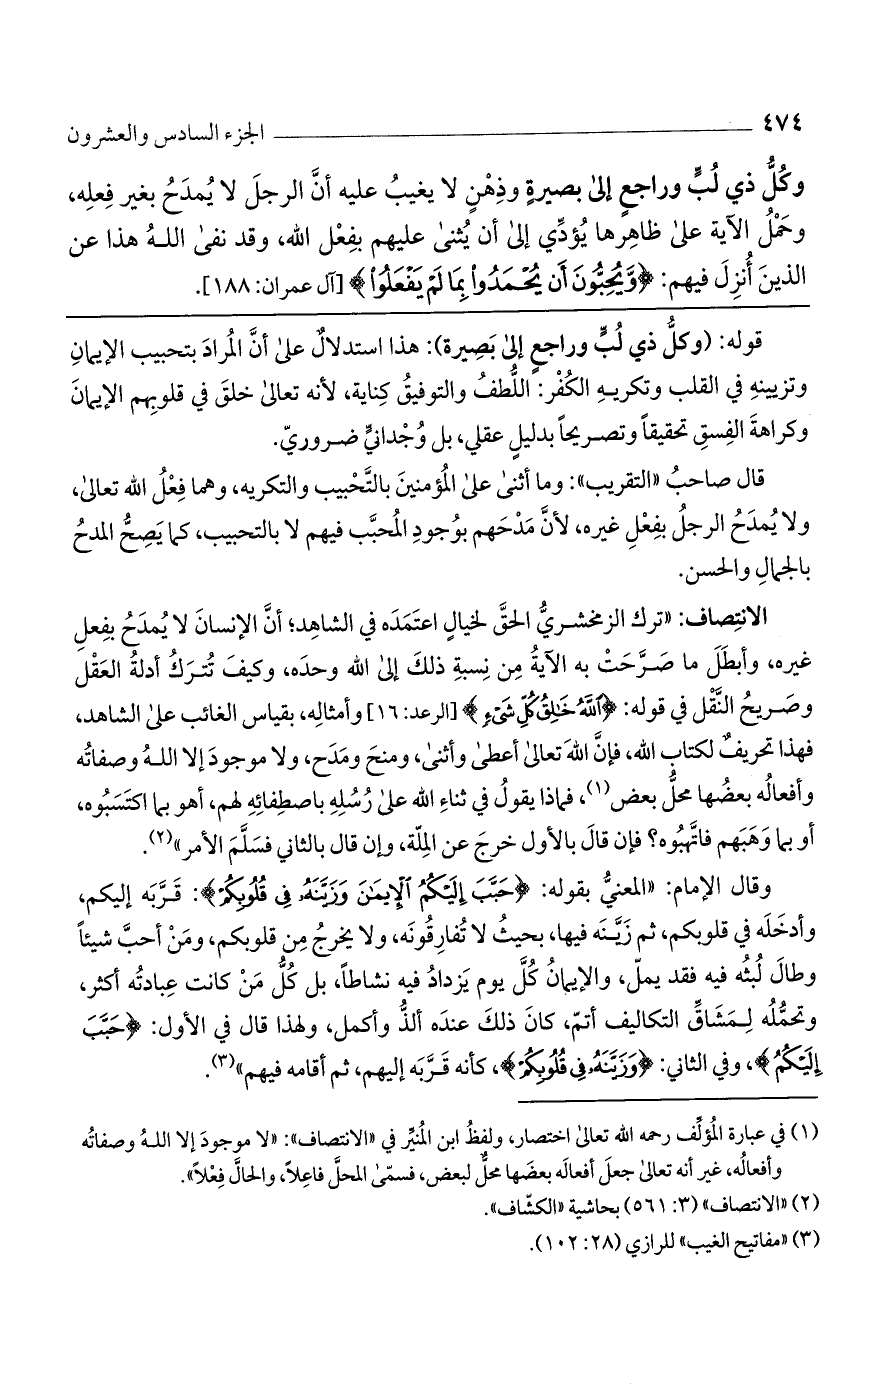 ٤٧٤ ــــــ الجزء السادس والعشرون
وكُلُّ ذي لُبٍّ وراجعٍ إلىٰ بصيرةٍ وذِهْنٍ لا يغيبُ عليه أنَّ الرجلَ لا يُمدَحُ بغير فِعلِه،
وحَمْلُ الآية علىٰ ظاهِرها يُؤدِّي إلىٰ أن يُثنىٰ عليهم بفِعْل الله، وقد نفىٰ اللـهُ هذا عن
الذينَ أُنزِلَ فيهم: ﴿وَّيُحِبُّونَ أَن يُحْمَدُواْ بِمَا لَمْ يَفْعَلُواْ﴾ [آل عمران: ١٨٨].
قوله: (وكلُّ ذي لُبٍّ وراجعٍ إلىٰ بَصِيرة): هذا استدلالٌ علىٰ أنَّ المُرادَ بتحبيب الإيمانِ
وتزيينهِ في القلب وتكريـهِ الكُفْر: اللُّطفُ والتوفيقُ كِناية، لأنه تعالىٰ خلقَ في قلوبِهم الإيمانَ
وكراهةَ الفِسقِ تحقيقاً وتصـريحاً بدليلٍ عقلي، بل وُجْدانيٍّ ضـروريّ.
قال صاحبُ «التقريب»: وما أثنىٰ علىٰ المُؤمنينَ بالتَّحْبيب والتكريه، وهما فِعْلُ الله تعالىٰ،
ولا يُمدَحُ الرجلُ بفِعْلِ غيره، لأنَّ مَدْحَهم بوُجودِ المُحبَّب فيهم لا بالتحبيب، كما يَصِحُّ المدحُ
بالجمالِ والحسن.
الانتِصاف: «ترك الزمخشـريُّ الحقَّ لخيالٍ اعتمَدَه في الشاهِد؛ أنَّ الإنسانَ لا يُمدَحُ بفِعلِ
غيره، وأبطَلَ ما صَـرَّحَتْ به الآيةُ مِن نِسبةِ ذلكَ إلىٰ الله وحدَه، وكيفَ تُتـرَكُ أدلةُ العَقْل
وصَـريحُ النَّقْل في قوله: ﴿ٱللَّهُ خَٰلِقُ كُلِّ شَىْءٍ﴾ [الرعد: ١٦] وأمثالِه، بقياس الغائب علىٰ الشاهد،
فهذا تحريفٌ لكتاب الله، فإنَّ اللهَ تعالىٰ أعطىٰ وأثنىٰ، ومنحَ ومَدَح، ولا موجودَ إلا اللـهُ وصفاتُه
وأفعالُه بعضُها محلُّ بعض(١)، فماذا يقولُ في ثناءِ الله علىٰ رُسُلِهِ باصطِفائِهِ لهم، أهو بما اكتَسَبُوه،
أو بما وَهَبَهم فاتَّهبُوه؟ فإن قالَ بالأول خرجَ عن المِلّة، وإن قال بالثاني فسَلَّمَ الأمر»(٢).
وقال الإمام: «المعنيُّ بقوله: ﴿حَبَّبَ إِلَيْكُمُ ٱلْإِيمَٰنَ وَزَيَّنَهُۥ فِى قُلُوبِكُمْ﴾: قَـرَّبَه إليكم،
وأدخَلَه في قلوبكم، ثم زَيَّـنَه فيها، بحيثُ لا تُفارِقُونَه، ولا يخرجُ مِن قلوبكم، ومَنْ أحبَّ شيئاً
وطالَ لُبثُه فيه فقد يملّ، والإيمانُ كُلَّ يوم يَزدادُ فيه نشاطاً، بل كُلُّ مَنْ كانت عِبادتُه أكثر،
وتحمُّلُه لِـمَشَاقِّ التكاليف أتمّ، كانَ ذلكَ عندَه ألذَّ وأكمل، ولهذا قال في الأول: ﴿حَبَّبَ
إِلَيْكُمُ﴾، وفي الثاني: ﴿وَزَيَّنَهُۥ فِى قُلُوبِكُمْ﴾، كأنه قَـرَّبَه إليهم، ثم أقامه فيهم»(٣).
(١) في عبارة المُؤلِّف رحمه الله تعالىٰ اختصار، ولفظُ ابن المُنيِّر في «الانتصاف»: «لا موجودَ إلا اللـهُ وصفاتُه
وأفعالُه، غير أنه تعالىٰ جعلَ أفعالَه بعضَها محلٌّ لبعض، فسمّىٰ المحلَّ فاعِلاً، والحالَّ فِعْلاً».
(٢) «الانتصاف» (٣: ٥٦١) بحاشية «الكشّاف».
(٣) «مفاتيح الغيب» للرازي (٢٨: ١٠٢).